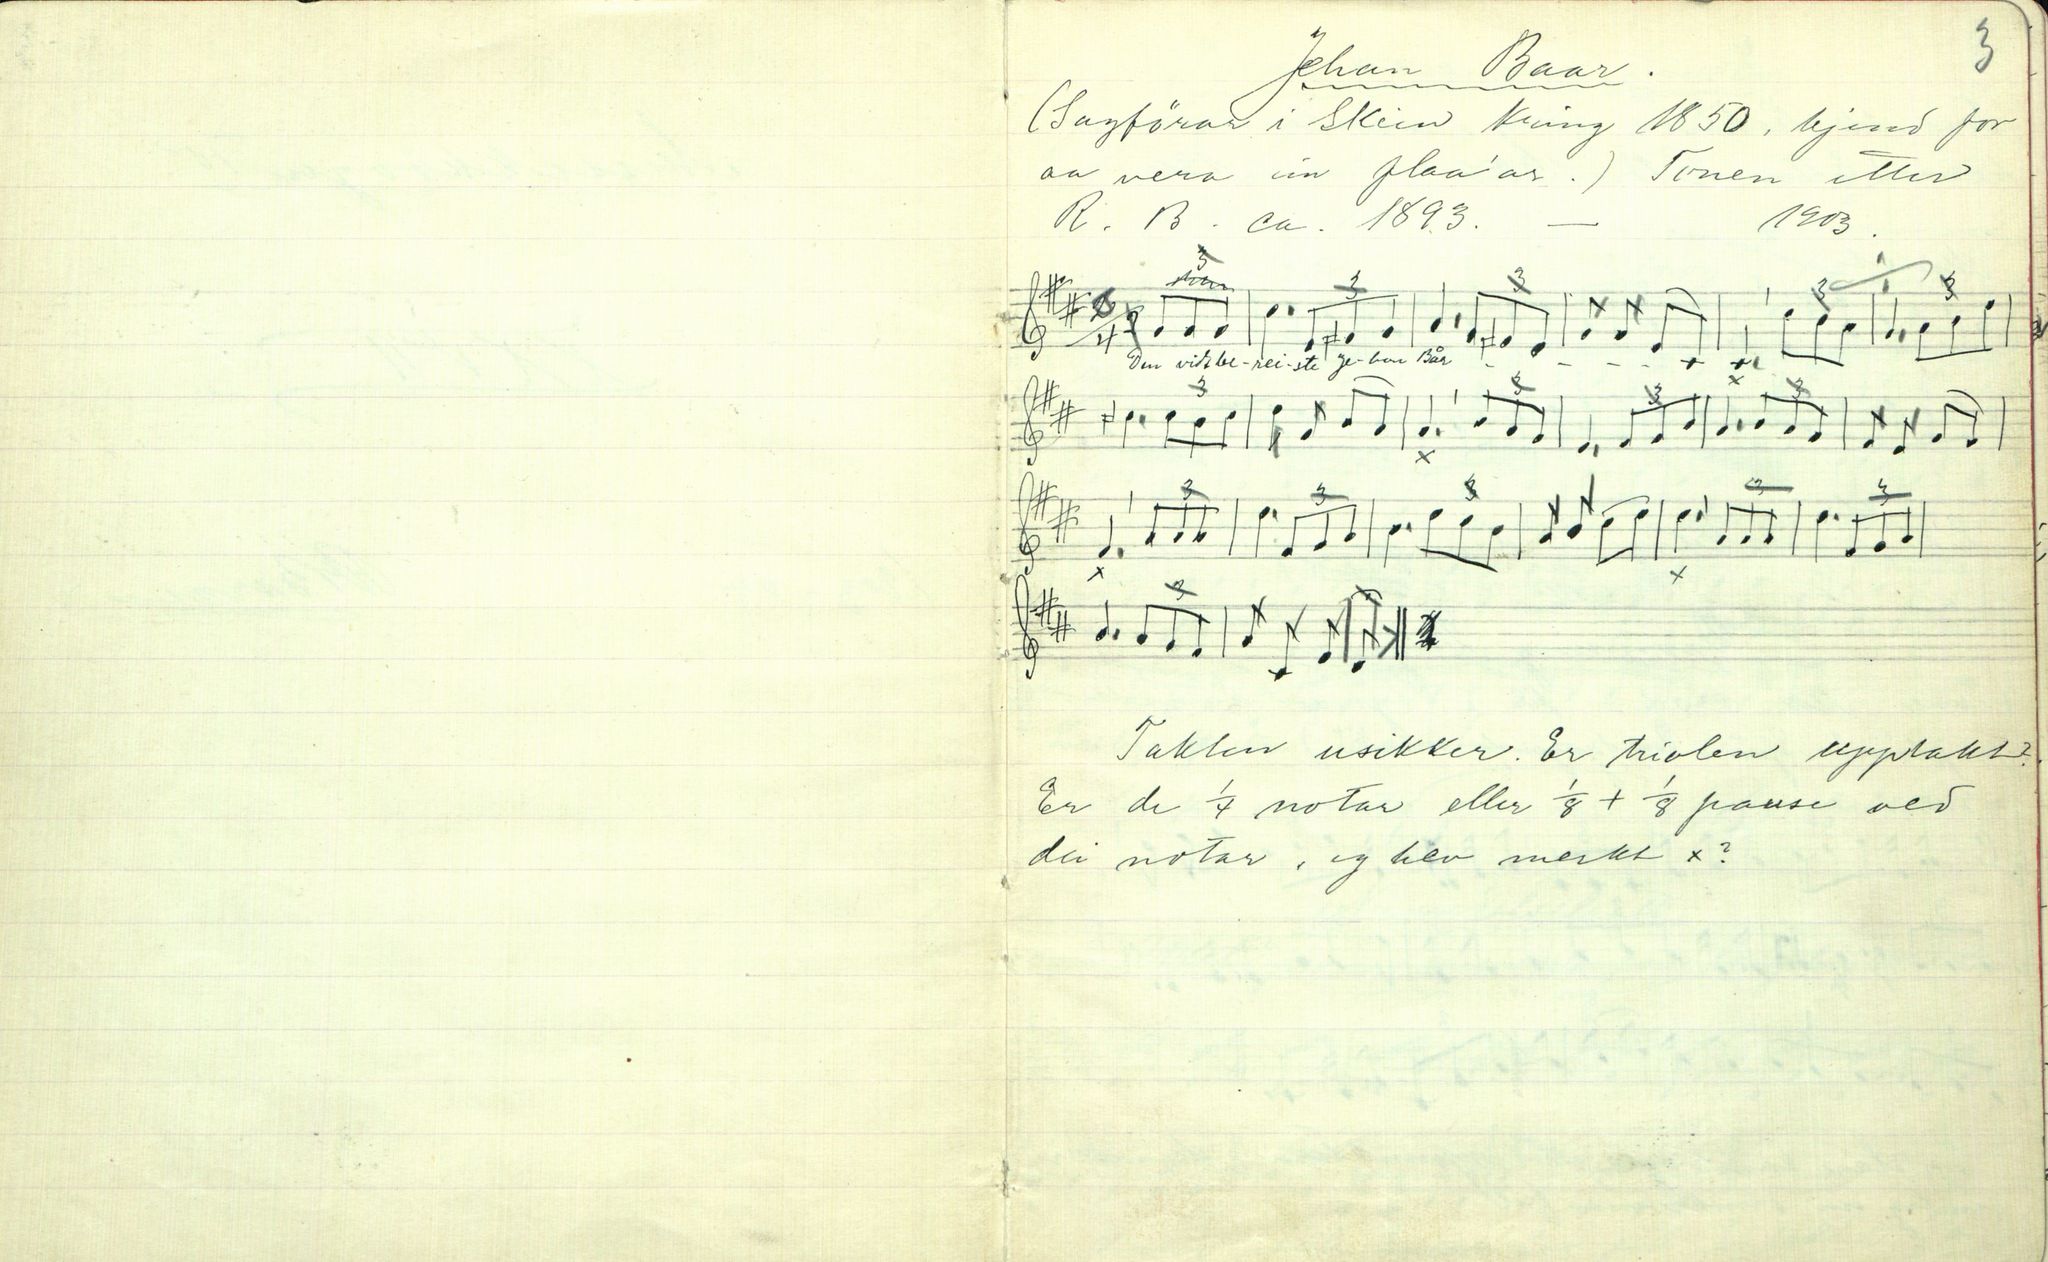 3
Jehan Baar.
(Sagförar i Skien kring 1850, kjend for
aa vera ein flaa'ar.) Tonen etter
R. B. ca. 1893. — 1903.
3 3 3 3 3
4
Den vidt be-rei-ste Je-han Bår - - - -
x
3 3 3 3
x
3 3 3 3 3
x x
3
Takten usikker. Er triolen upptakt?
Er de 1/4 notar eller 1/8 + 1/8 pause ved
dei notar, eg hev merkt x?